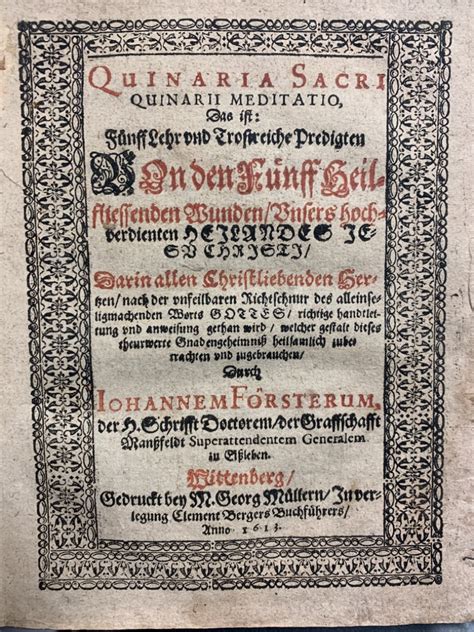 QUINARIA SACRI
QUINARII MEDITATIO,
Das ist:
Fünff Lehr vnd Trostreiche Predigten
VOn den Fünff Heil-
fliessenden Wunden/Vnsers hoch-
verdienten HEILANDES JE-
SV CHRISTI/
Darin allen Christliebenden Her-
tzen/ nach der vnfeilbaren Richtschnur des alleinse-
ligmachenden Worts GOTTES/ richtige handtlei-
tung vnd anweisung gethan wird/ welcher gestalt dieses
thewrwerte Gnadengeheimniß heilsamlich zube-
trachten vnd zugebrauchen/
Durch
IOHANNEM FÖRSTERUM,
der H. Schrifft Doctorem/der Graffschafft
Manßfeldt Superattendentem Generalem
zu Eißleben.
Wittenberg/
Gedruckt bey M. Georg Müllern/ In ver-
legung Clement Bergers Buchführers/
Anno 1613.